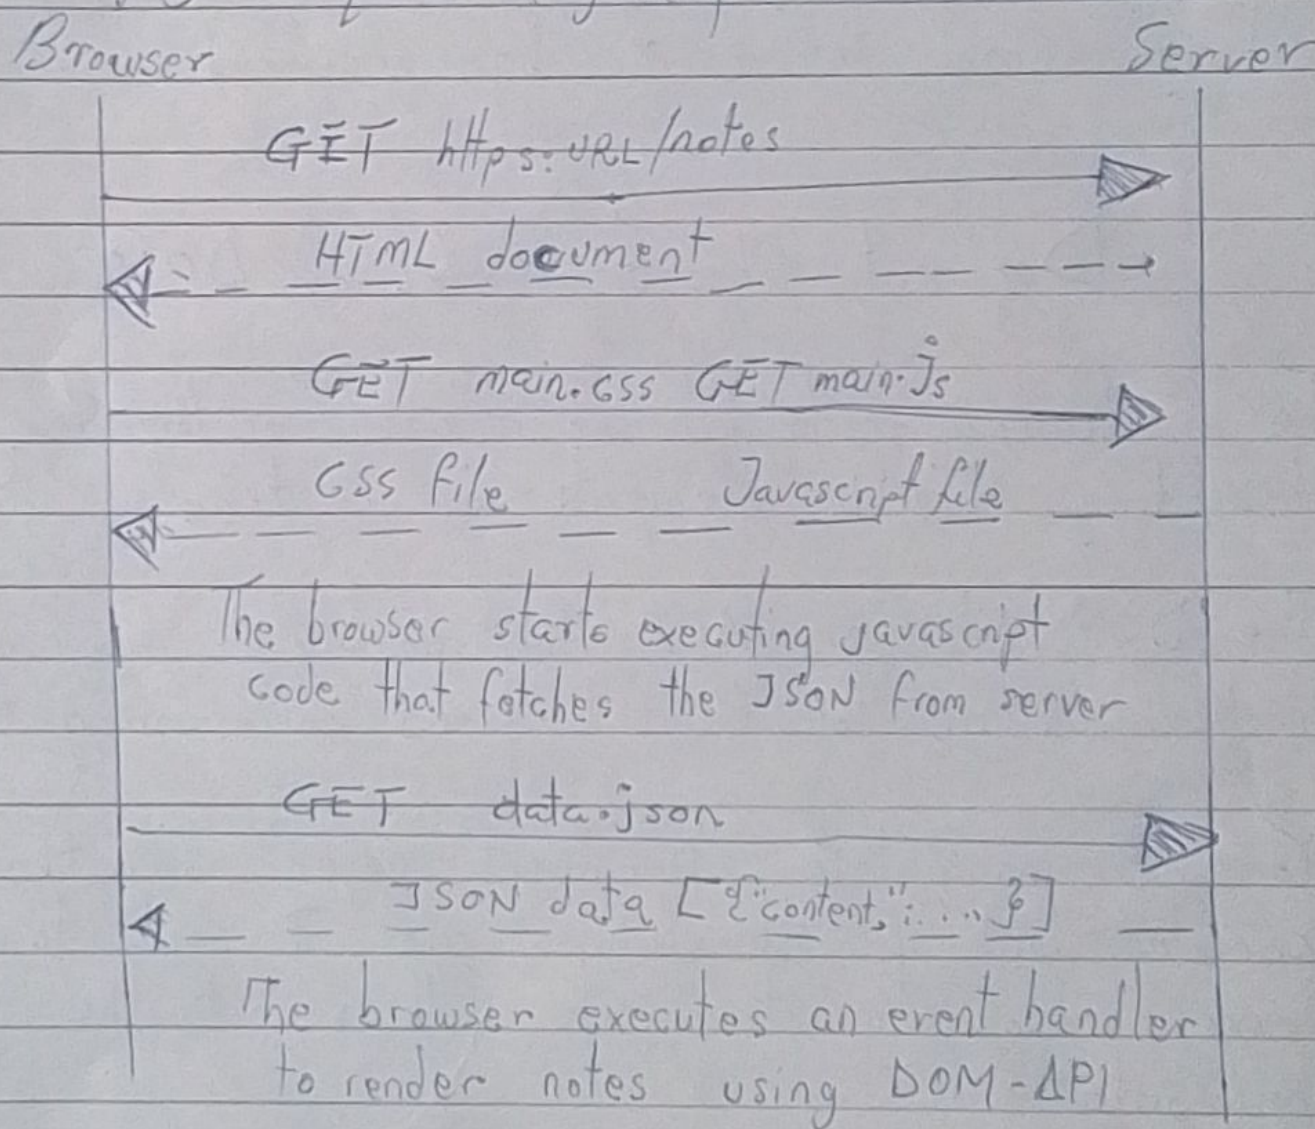 Browser Server
GET https:URL/notes
HTML document
GET main.css GET main.js
CSS file Javascript file
The browser starts executing javascript
code that fetches the JSON from server
GET data.json
JSON data [{"content,":....}]
The browser executes an event handler
to render notes using DOM-API